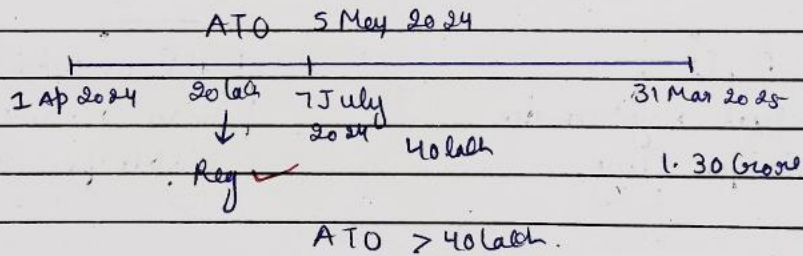 ATO 5 May 2024
1 Ap 2024 20 lakh 7 July 2024 31 Mar 2025
40 lakh
Reg ✓ 1.30 Crore
ATO > 40 lakh.